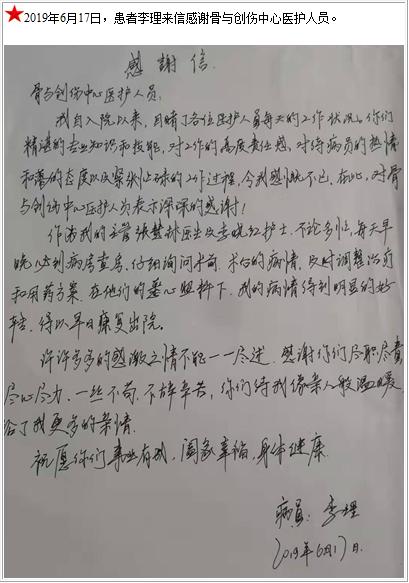 ★2019年6月17日，患者李理来信感谢骨与创伤中心医护人员。
感謝信
骨与创伤中心医护人员：
我自入院以来，目睹了各位医护人员每天的工作状况。你们
精湛的专业知识和技能，对工作的高度责任感，对待病员的热情
和蔼的态度以及紧张的工作过程，令我感慨不已。在此，对骨
与创伤中心医护人员表示深深的感谢！
作为我的主管张楚林医生及李晓红护士，不论多忙，每天早
晚必到病房查房，仔细询问术前、术后的病情，及时调整治疗
和用药方案。在他们的悉心照料下，我的病情得到明显的好
转，得以早日康复出院。
许许多多的感激之情不能一一尽述。感谢你们尽职尽责
尽心尽力，一丝不苟，不辞辛苦，你们待我像亲人般温暖
给了我更多的亲情
祝愿你们事业有成，阖家幸福，身体健康
病员：李理
2019年6月17日